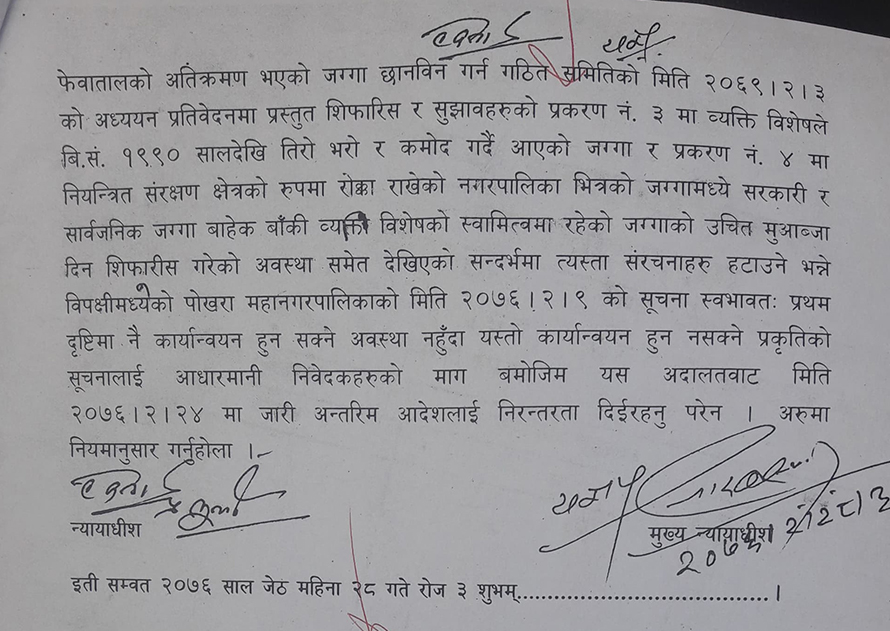 फेवातालको अतिक्रमण भएको जग्गा छानविन गर्न गठित समितिको मिति २०६९।२।३
को अध्ययन प्रतिवेदनमा प्रस्तुत शिफारिस र सुझावहरुको प्रकरण नं. ३ मा व्यक्ति विशेषले
बि.सं. १९९० सालदेखि तिरो भरो र कमोद गर्दै आएको जग्गा र प्रकरण नं. ४ मा
नियन्त्रित संरक्षण क्षेत्रको रुपमा रोक्का राखेको नगरपालिका भित्रको जग्गामध्ये सरकारी र
सार्वजनिक जग्गा बाहेक बाँकी व्यक्ति विशेषको स्वामित्वमा रहेको जग्गाको उचित मुआब्जा
दिन शिफारीस गरेको अवस्था समेत देखिएको सन्दर्भमा त्यस्ता संरचनाहरु हटाउने भन्ने
विपक्षीमध्येको पोखरा महानगरपालिकाको मिति २०७६।२।९ को सूचना स्वभावतः प्रथम
दृष्टिमा नै कार्यान्वयन हुन सक्ने अवस्था नहुँदा यस्तो कार्यान्वयन हुन नसक्ने प्रकृतिको
सूचनालाई आधारमानी निवेदकहरुको माग बमोजिम यस अदालतवाट मिति
२०७६।२।२४ मा जारी अन्तरिम आदेशलाई निरन्तरता दिईरहनु परेन । अरुमा
नियमानुसार गर्नुहोला ।-
न्यायाधीश
मुख्य न्यायाधीश
इती सम्वत २०७६ साल जेठ महिना २८ गते रोज ३ शुभम्.......................................।